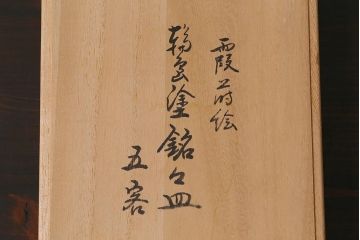 霞蒔絵
輪島塗銘々皿
五客